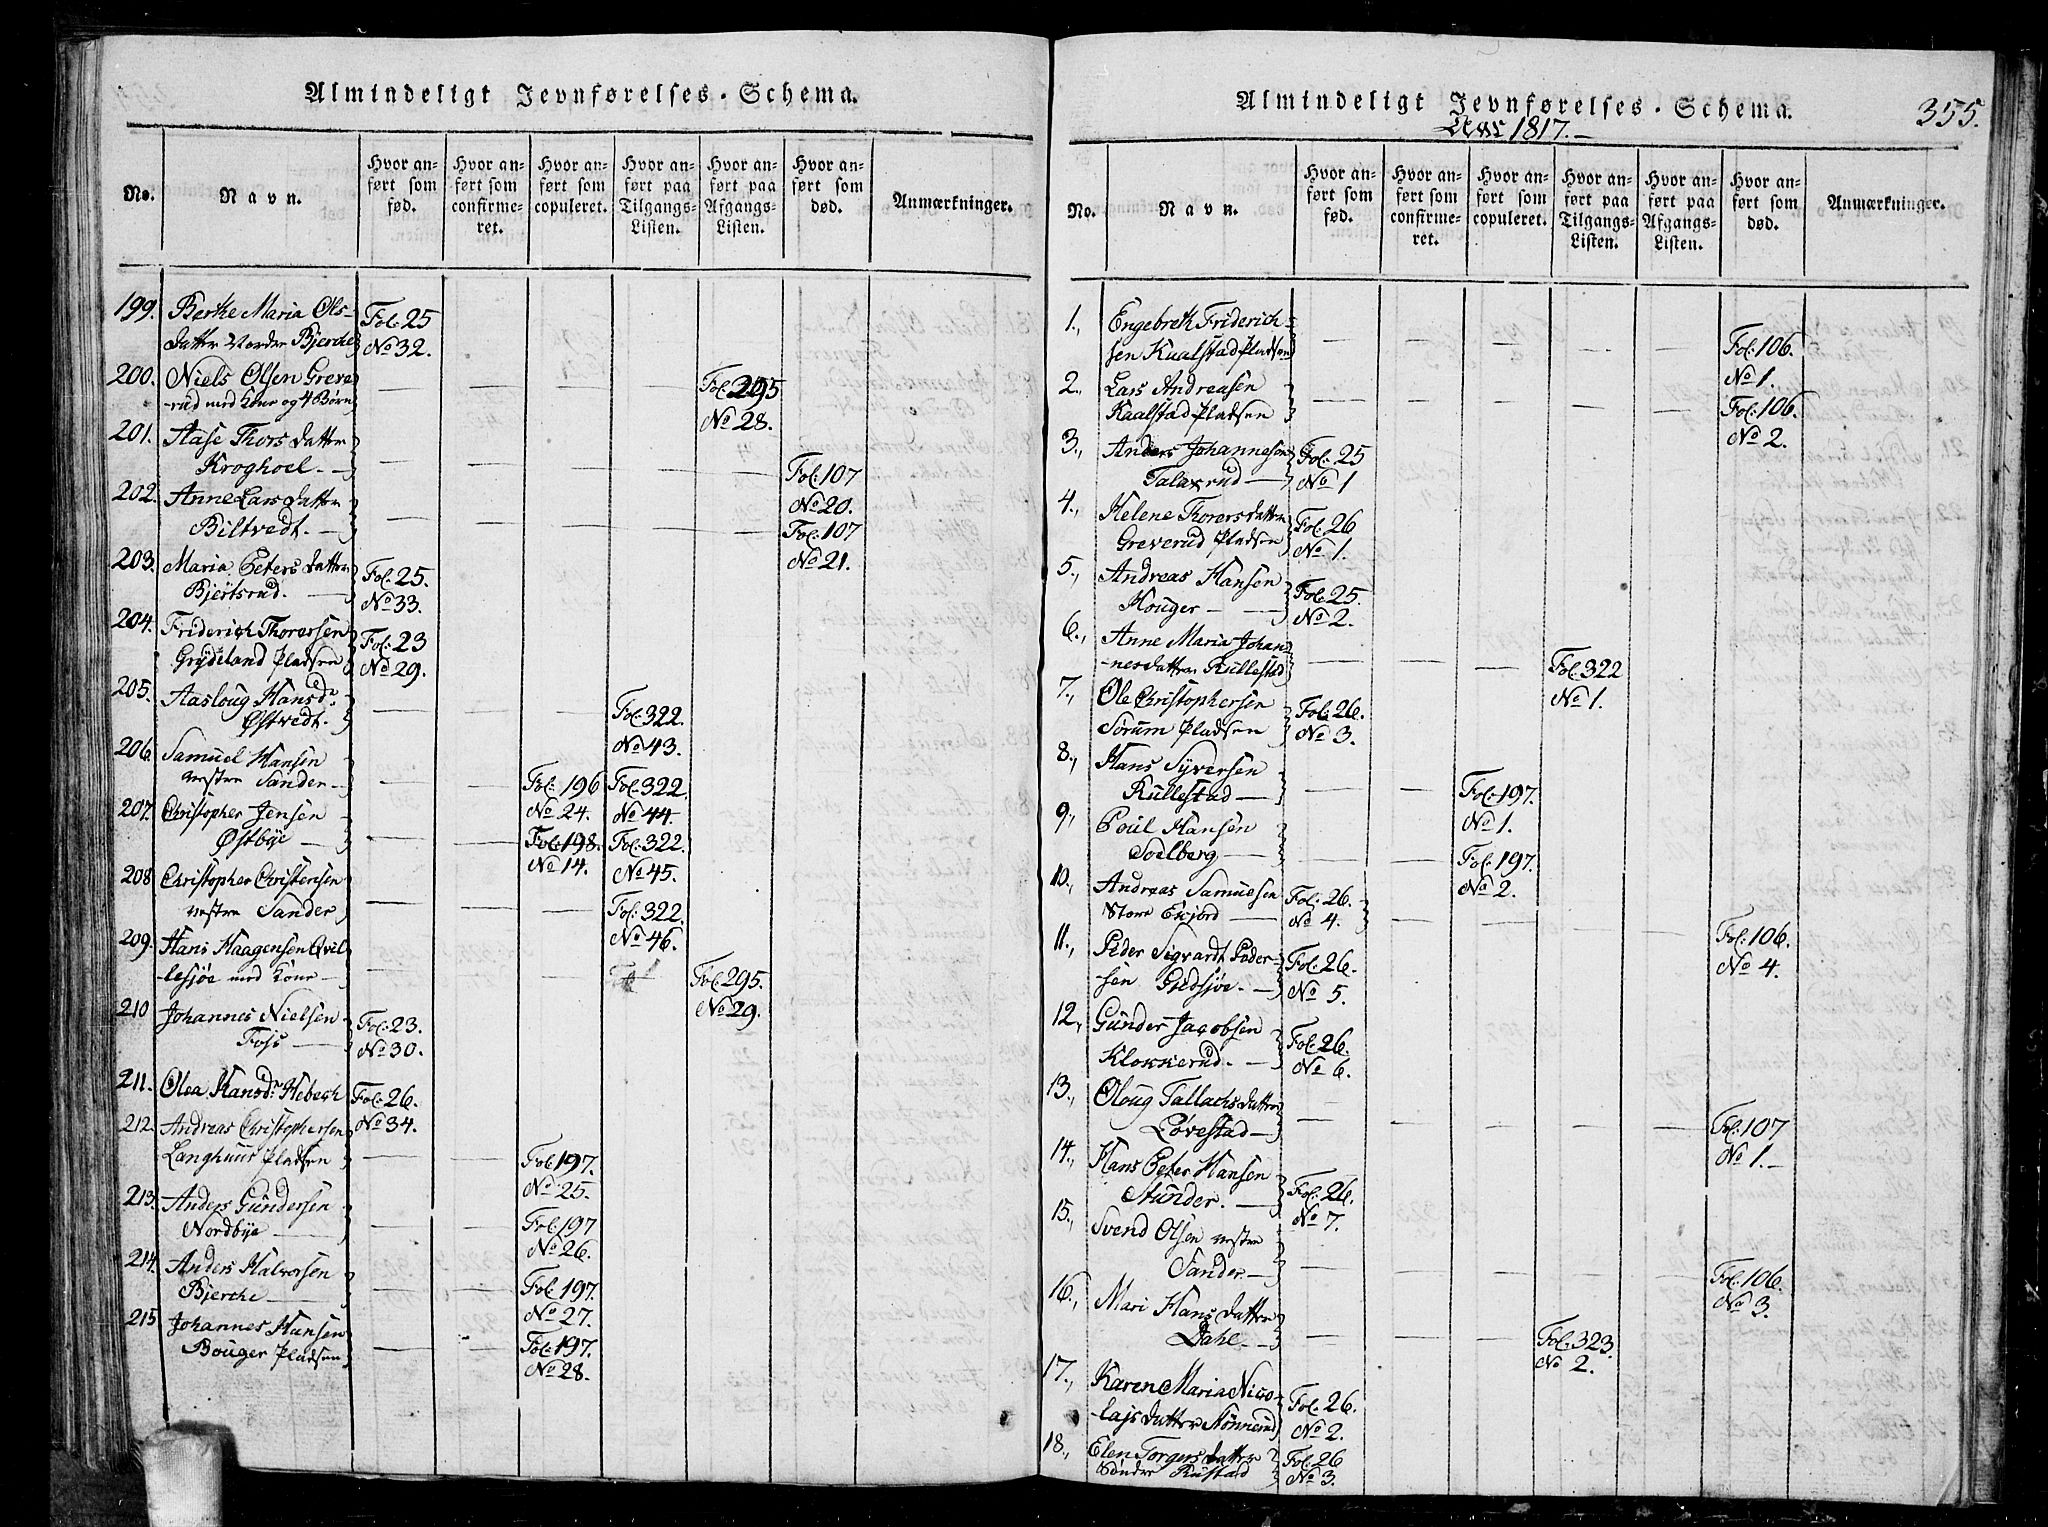 Almindeligt Jevnførelses-Schema.
No.
Navn.
Hvor anført som fød.
Hvor anført som confirmeret.
Hvor anført som copuleret.
Hvor anført paa Tilgangs-Listen.
Hvor anført paa Afgangs-Listen.
Hvor anført som død.
Anmærkninger.
199. Berthe Maria Ols-
datter Vordre Bjerche
Fol: 25
No 32.
200. Niels Olsen Greve-
rud med Kone og 4 Børn
Fol: 295
No 28.
201. Aase Thorsdatter
Kroghoel.
Fol: 107
No 20.
202. Anne Larsdatter
Biltvedt.
Fol: 107
No 21.
203. Maria Petersdatter
Bjertsrud.
Fol: 25.
No 33.
204. Friderich Thorersen
Grydeland Pladsen
Fol: 23
No 29.
205. Aasloug Hansdr
Østvedt.
Fol: 322.
No 43.
206. Samuel Hansen
vestre Sander
Fol: 196
No 24.
Fol: 322.
No 44.
207. Christopher Jensen
Østbye
Fol: 198.
No 14.
Fol: 322.
No 45.
208 Christopher Christensen
vestre Sander
Fol: 322.
No 46.
209. Hans Haagensen Qvil-
lesjøe med Kone
Fol: 295.
No 29.
210 Johannes Nielsen
Foss
Fol: 23.
No 30.
211. Olea Hansdr Hebech
Fol: 26.
No 34.
212. Andreas Christophersen
Langhuus Pladsen
Fol: 197.
No 25.
213. Anders Gundersen
Nordbye
Fol: 197
No 26.
214. Anders Halvorsen
Bjerche
Fol: 197.
No 27.
215 Johannes Hansen
Bouger Pladsen
Fol: 197.
No 28.
Almindeligt Jevnførelses-Schema.
Aar 1817.
355.
No.
Navn.
Hvor anført som fød.
Hvor anført som confirmeret.
Hvor anført som copuleret.
Hvor anført paa Tilgangs-Listen.
Hvor anført paa Afgangs-Listen.
Hvor anført som død.
Anmærkninger.
1., Engebreth Friderich-
sen Kaalstad Pladsen
Fol: 106.
No 1.
2., Lars Andreasen
Kaalstad Pladsen
Fol: 106.
No 2.
3., Anders Johannesen
Talaxrud
Fol: 25
No 1
4., Helene Thorersdatter
Greverud Pladsen
Fol: 26
No 1.
5., Andreas Hansen
Houger
Fol: 25.
No 2.
6., Anne Maria Johan-
nesdatter Rullestad
Fol: 322
No 1.
7., Ole Christophersen
Sørum Pladsen
Fol: 26.
No 3.
8., Hans Syversen
Rullestad
Fol: 197.
No 1.
9., Poul Hansen
Soelberg
Fol: 197.
No 2.
10., Andreas Samuelsen
Store Ekjord
Fol: 26.
No 4.
Fol: 106.
No 4.
11., Peder Sigvardt Peder-
sen Gjedsjøe.
Fol: 26.
No 5.
12., Gunder Jacobsen
Klokkerud.
Fol: 26.
No 6.
13., Oloug Tallachsdatter
Løvestad
Fol: 107
No 1.
14., Hans Peter Hansen
Stunder.
Fol: 26.
No 7.
15., Svend Olsen vestre
Sander
Fol: 106.
No 3.
16., Mari Hansdatter
Dahl
Fol: 323.
No 2.
17., Karen Maria Nico-
lajsdatter Mønnerud
Fol: 26.
No 2.
18., Elen Torgersdatter
Søndre Rustad
Fol: 26
No 3.